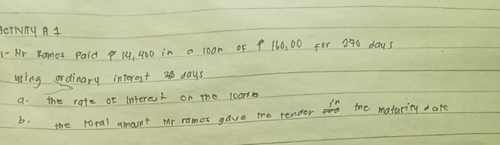 ACTIVITY # 1
1- Mr Ramos Paid ₱ 14,400 in a loan of ₱ 160,00 for 270 days
using ordinary interest days
a. the rate of interest on the loan
b. the total amount Mr ramos gave the lender in the maturity date